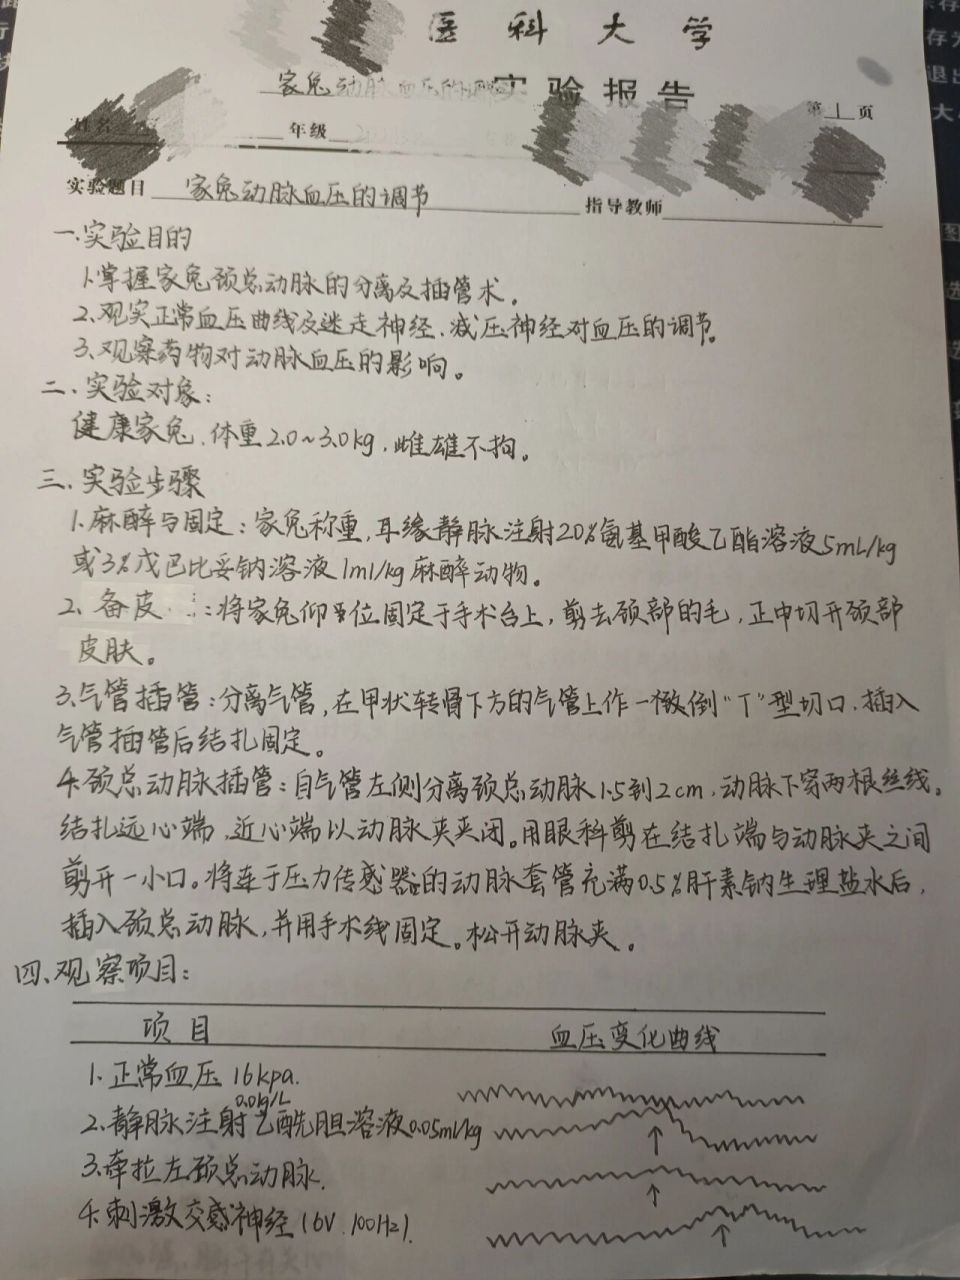 医科大学
家兔动脉血压的调节 实验报告
第 1 页
姓名 年级
实验题目 家兔动脉血压的调节 指导教师
一.实验目的
1.掌握家兔颈总动脉的分离及插管术。
2.观实正常血压曲线及迷走神经、减压神经对血压的调节。
3.观察药物对动脉血压的影响。
二.实验对象：
健康家兔、体重2.0~3.0kg，雌雄不拘。
三.实验步骤
1.麻醉与固定：家兔称重，耳缘静脉注射20%氨基甲酸乙酯溶液5mL/kg
或3%戊巴比妥钠溶液1ml/kg麻醉动物。
2.备皮：将家兔仰卧位固定于手术台上，剪去颈部的毛，正中切开颈部
皮肤。
3.气管插管：分离气管，在甲状软骨下方的气管上作一倒“T”型切口，插入
气管插管后结扎固定。
4.颈总动脉插管：自气管左侧分离颈总动脉1.5到2cm，动脉下穿两根丝线。
结扎远心端，近心端以动脉夹夹闭。用眼科剪在结扎端与动脉夹之间
剪开一小口。将连于压力传感器的动脉套管充满0.5%肝素钠生理盐水后，
插入颈总动脉，并用手术线固定。松开动脉夹。
四、观察项目：
项目 血压变化曲线
1.正常血压 16kpa.
0.01g/L
2.静脉注射乙酰胆溶液0.05ml/kg
3.牵拉左颈总动脉.
4.刺激交感神经(6V.100Hz).